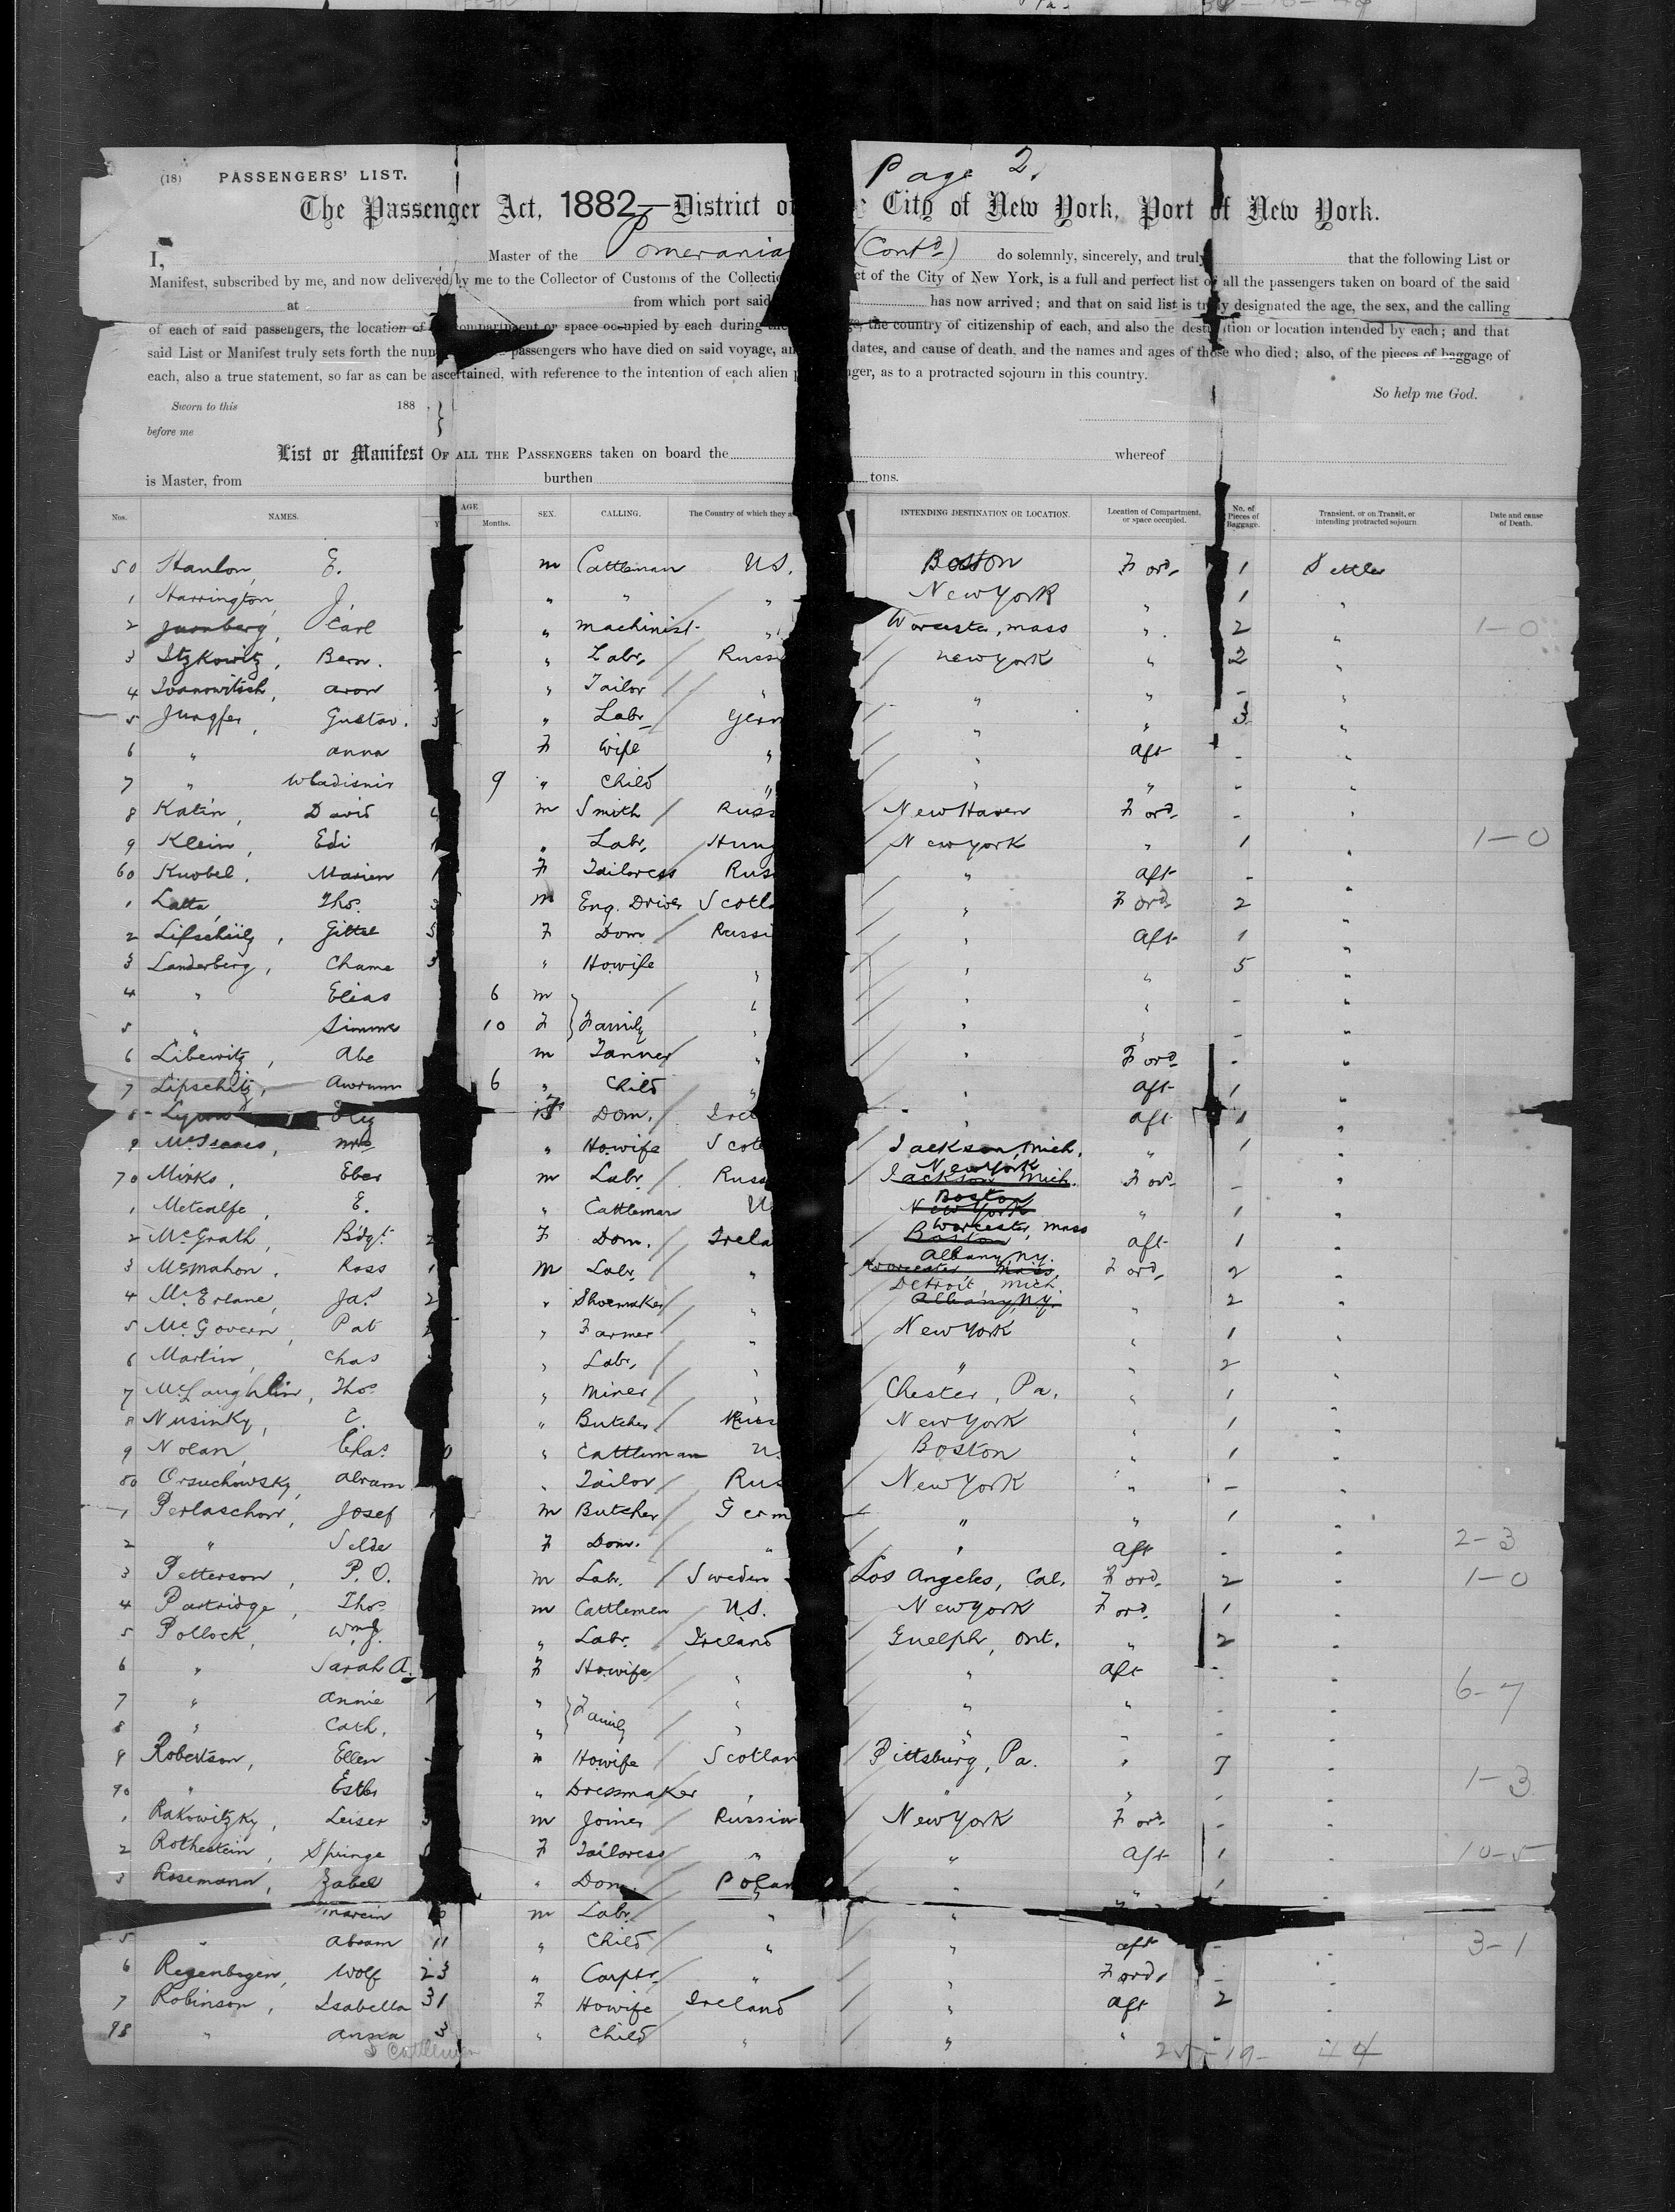 (18) PASSENGERS' LIST.
Page 2.
The Passenger Act, 1882—District City of New York, Port of New York.
I, Master of the Pomerania (Contd) do solemnly, sincerely, and truly that the following List or
Manifest, subscribed by me, and now delivered by me to the Collector of Customs of the of the City of New York, is a full and perfect list of all the passengers taken on board of the said
at from which port said has now arrived; and that on said list is truly designated the age, the sex, and the calling
of each of said passengers, the location of compartment or space occupied by each during the country of citizenship of each, and also the destination or location intended by each; and that
said List or Manifest truly sets forth the passengers who have died on said voyage, dates, and cause of death, and the names and ages of those who died; also, of the pieces of baggage of
each, also a true statement, so far as can be ascertained, with reference to the intention of each alien as to a protracted sojourn in this country.
So help me God.
Sworn to this 188
before me
List or Manifest OF ALL THE PASSENGERS taken on board the whereof
is Master, from burthen tons.
Nos. NAMES. AGE Months. SEX. CALLING. The Country of which they INTENDING DESTINATION OR LOCATION. Location of Compartment, or space occupied. No. of Pieces of Baggage. Transient, or on Transit, or intending protracted sojourn Date and cause of Death.
50 Hanlon, E. m Cattleman US. Boston Ford 1 Settler
1 Harrington, J. " " " New York " 1 "
2 Carl " machinist Worcester, mass " 2 " 1-0
3 Itzkowitz, Bern. " Labr, Russ New York " 2 "
4 Ivanowitsch, aron " Tailor " " " - "
5 Jungfer, Gustav. " Labr Germ " " 3 "
6 " anna F Wife " " aft - "
7 " Wladisnir 9 " Child " " " - "
8 Katin, David m Smith Russ New Haven Ford - "
9 Klein, Edi " Labr, Hung New York " 1 " 1-0
60 Knobel, Marien F Tailoress Rus " aft - "
1 Latta, Thos. m Eng. Driver Scotla " Ford 2 "
2 Lifschitz, Gittel F Dom. Russi " aft 1 "
3 Landerberg, Chame " Howife " " " 5 "
4 " Elias 6 m " " " - "
5 " Simme 10 F Family " " " - "
6 Libewitz, Abe m Tanner " " Ford - "
7 Lipschitz, Awrum 6 " Child " " aft 1 "
8 Lyons F Dom. Irel " aft 1 "
9 McIsaacs, Mrs " Howife Scot Jackson, Mich. " 1 "
70 Mirks, Eber m Labr. Russ New York Jackson Mich. Ford - "
1 Metcalfe, E. " Cattleman U Boston New York " 1 "
2 McGrath, Bdgt. F Dom. Irela Worcester, mass Boston aft 1 "
3 McMahon, Ross m Labr. " Albany, ny. Worcester Mass Ford 2 "
4 McErlane, Jas " Shoemaker " Detroit, mich. Albany, N.Y. " 2 "
5 McGovern, Pat " Farmer " New York " 1 "
6 Martin, Chas " Labr, " " " 2
7 McLaughlin, Thos. " Miner " Chester, Pa. " 1 "
8 Nusinky, C. " Butcher Russ New York " 1 "
9 Nolan, Chas. " Cattleman U. Boston " 1 "
80 Orsuchowsky, Abram " Tailor Rus New York " - "
1 Perlaschow, Josef m Butcher Germ " " 1 "
2 " Selde F Dom. " " aft - " 2-3
3 Petterson, P.O. m Labr. Sweden Los Angeles, Cal. Ford 2 " 1-0
4 Partridge, Thos. m Cattleman US. New York Ford 1 "
5 Pollock, Wm J. " Labr. Ireland Guelph, Ont. " 2 "
6 " Sarah A. F Howife " " aft - " 6-7
7 " Annie " Family " " " - "
8 " Cath. " " " - - "
9 Robertson, Ellen " Howife Scotlan Pittsburg, Pa. " 7 "
90 " Esther " Dressmaker " " " - " 1-3
1 Rakowitzky, Leiser m Joiner Russia New York Ford - "
2 Rothestein, Springe F Tailoress " " aft 1 " 10-5
3 Rosemann, Zabel " Dom. Polan " " 1 "
m Labr. " " "
5 " Abram 11 " Child " " aft - " 3-1
6 Regenbogen, Wolf 23 " Carptr. " " Ford. - "
7 Robinson, Isabella 31 F Howife Ireland " aft 2 "
98 " Anna 3 " Child " " " - "
5 Cattlemen 25-19- 44